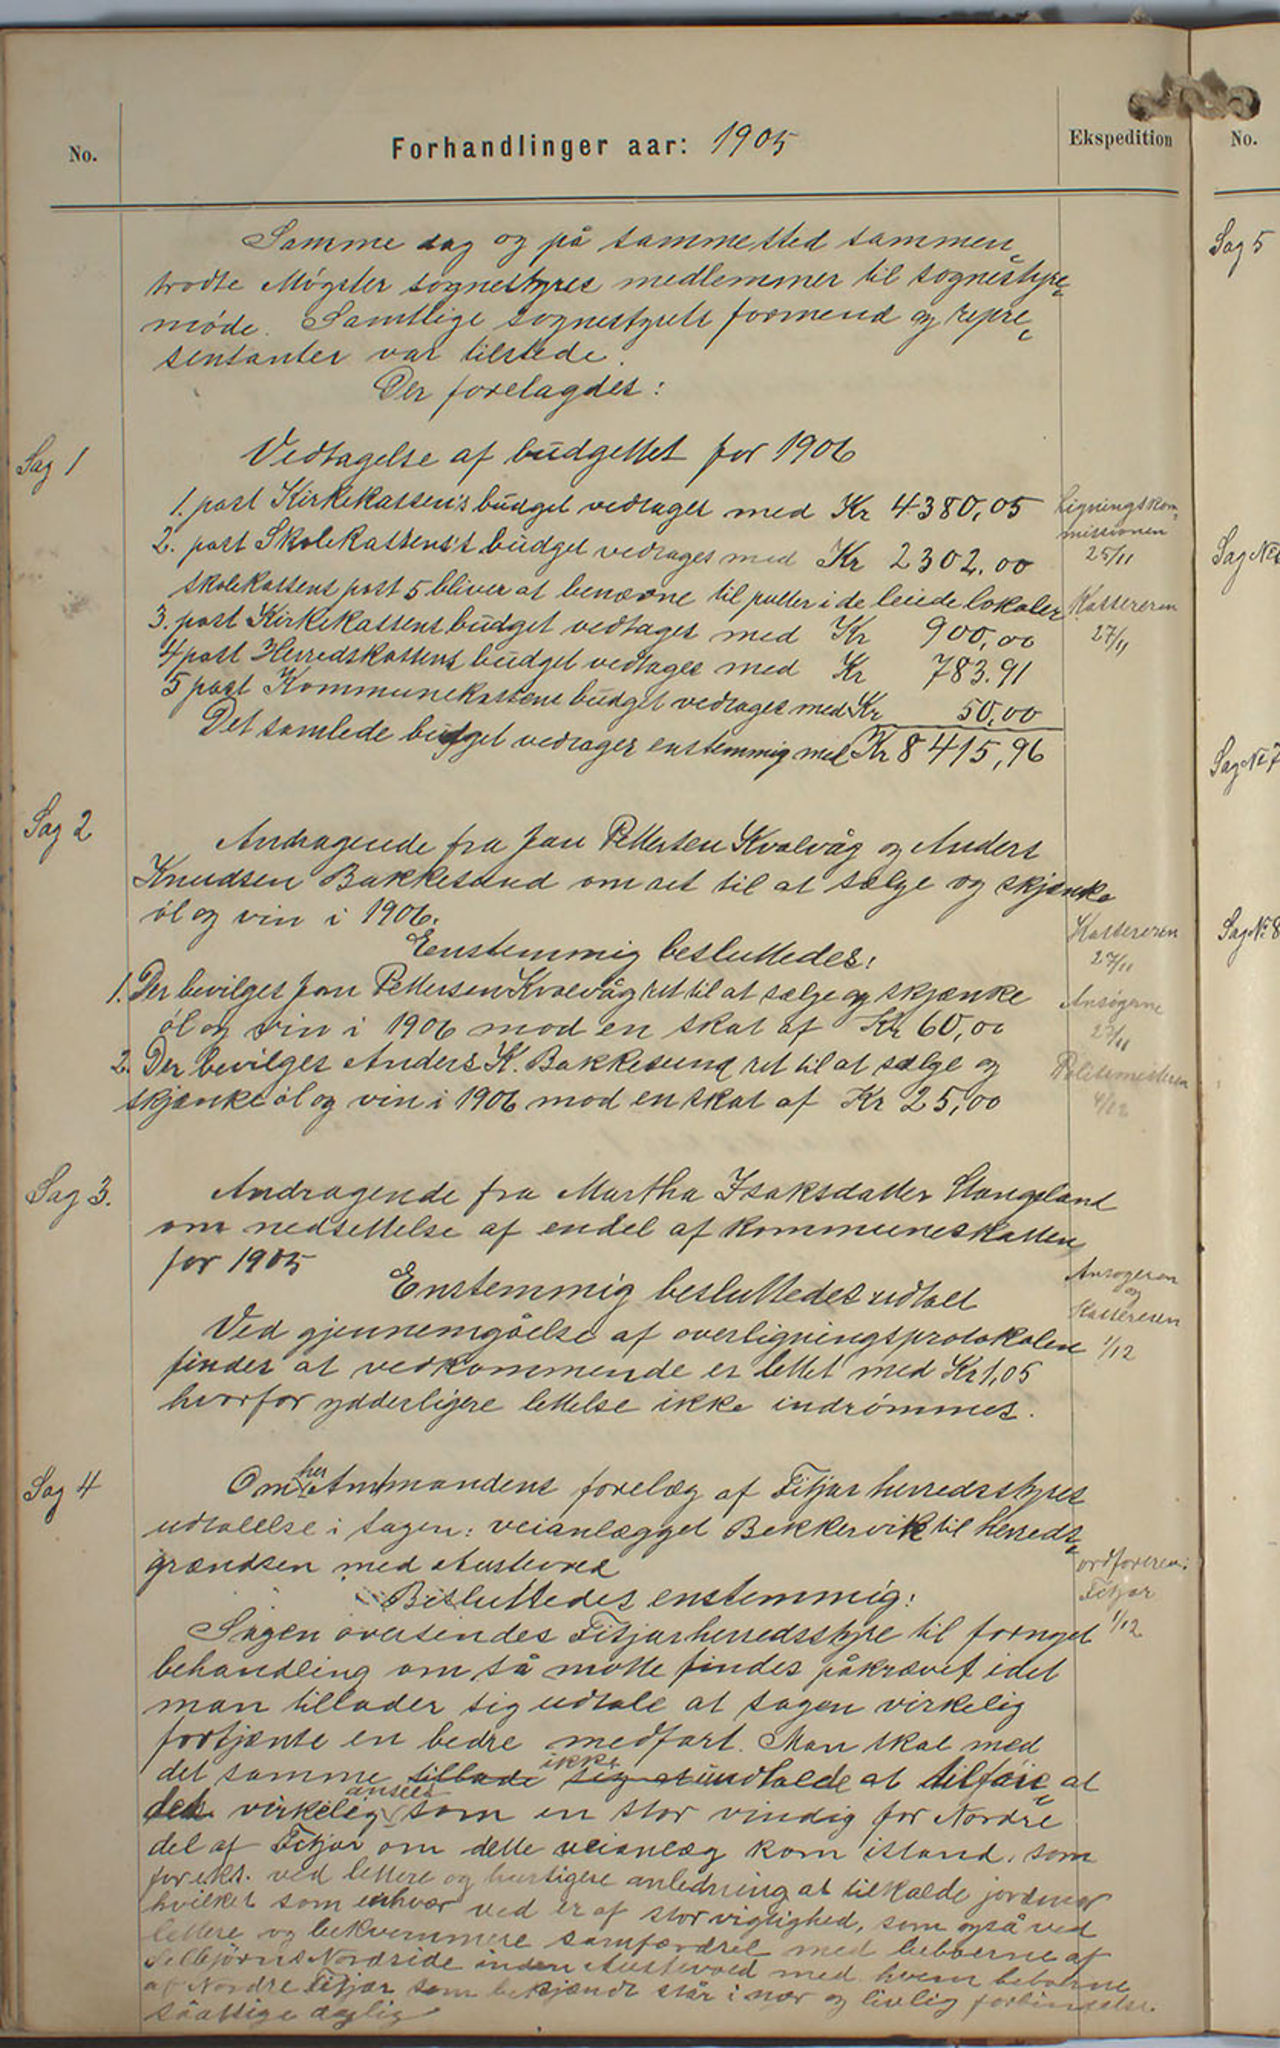 No.
Forhandlinger aar: 1905
Ekspedition
No.
Samme dag og på sammested sammen„
trødte Møgster sognestyres medlemmer til sognestyre„
møde. Samtlige sognestyrets formend og repre„
sentanter var tilstede.
Der forelagdes:
Sag 1
Vedtagelse af budgettet for 1906
1. post Kirkekassen's budget vedtaget med Kr 4380,05
2. post Skolekassens's budget vedtages med Kr 2302.00
skolekassens post 5 bliver at benævne til pulter i de leiede lokaler
3. post Kirkekassens budget vedtaget med Kr 900,00
4 post Herredskassens budget vedtages med Kr 783.91
5 post Kommunekassens budget vedtages med Kr 50,00
Det samlede budget vedtages enstemmig med Kr 8415,96
Ligningskom„
missionen
25/11
Kassereren
27/11
Sag 2
Andragende fra Jan Pettersen Kvalvåg og Anders
Knudsen Bakkesund om ret til at sælge og skjænke
øl og vin i 1906.
Eenstemmig besluttedes:
1. Der bevilges Jan Pettersen Kvalvåg ret til at sælge og skjænke
øl og vin i 1906 mod en skat af Kr 60,00
2. Der bevilges Anders K. Bakkesund ret til at sælge og
skjænke øl og vin i 1906 mod en skat af Kr 25,00
Kassereren
27/11
Ansøgerne
27/11
Politimesteren
4/12
Sag 3.
Andragende fra Martha Isaksdatter Stangeland
om nedsettelse af endel af kommuneskatten
for 1905
Enstemmig besluttedes udtalt
Ved gjennemgåelse af overligningsprotokolen
findes at vedkommende er lettet med Kr 1,05
hvorfor ydderligere lettelse ikke indrømmes.
Ansøgeren
og
Kassereren
1/12
Sag 4
Om her Amtmandens forelæg af Fitjar herredsstyres
udtalelse i sagen: veianlægget Bekkervik til herreds„
grændsen med Austevold
Besluttedes enstemmig:
Sagen oversendes Fitjar herredsstyre til fornyet
behandling om så måtte findes påkrævet idet
man tillader sig udtale at sagen virkelig
fortjænte en bedre medfart. Man skal med
det samme tillade ikke sig at undlade at tilføie at
det virkelig ansees som en stor vindig for Nordre
del af Fitjar om dette veianlæg kom istand, som
for eks. ved lettere og hurtigere anledning at tilkalde jordmor
hvilket som enhver ved er af stor vigtighed, som også ved
lettere og bekvemmere samfærdsel med beboerne af
Selbjörns Nordside inden Austevold med hvem beboerne
af Nordre Fitjar som bekjændt står i nær og livlig forbindelse
såattsige daglig
ordføreren i
Fitjar
1/12
Sag 5
Sag No
Sag No 7
Sag No 8